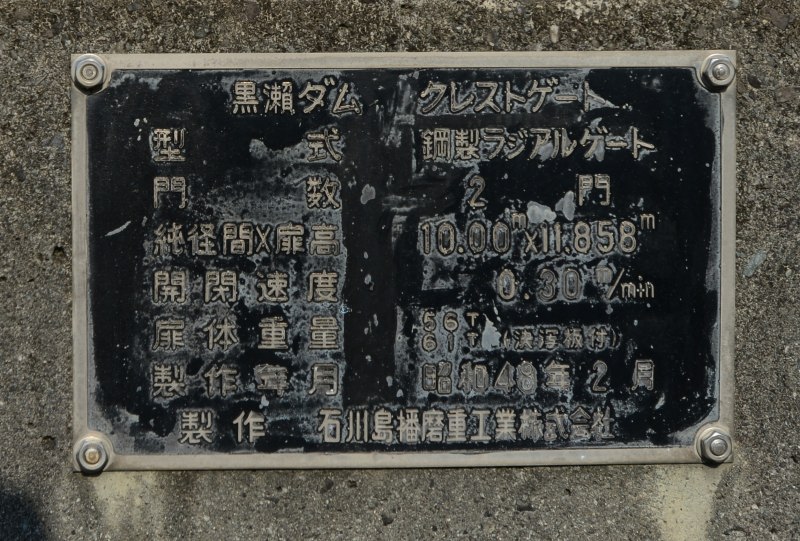 黒瀬ダム クレストゲート
型式 鋼製ラジアルゲート
門数 2門
純径間×扉高 10.00m×11.858m
開閉速度 0.30m/min
扉体重量 56T
61T
製作年月 昭和48年2月
製作 石川島播磨重工業株式会社